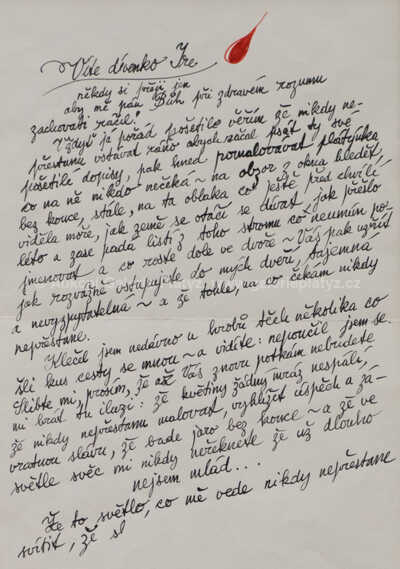 Vaše divenko Ire
někdy si přeji jen
aby mě pán Bůh při zdravém rozumu
zachovati ráčil!
Vždyť já pořád pošetile věřím že nikdy ne-
přestanu vstávat ráno abych začal psát ty své
pošetilé dopisy, pak hned pomalovávat plátýnka
co na ně nikdo nečeká ~ na obzor z okna hledět
bez konce, stále, na ta oblaka co ještě před chvílí
viděla moře, jak země se otáčí se dívat, jak přešlo
léto a zase padá listí z toho stromu co neumím po-
jmenovat a co roste dole ve dvoře ~ Vás pak uzřít
jak rozvážně vstupujete do mých dveří, tajemna
a nevyzpytatelná ~ a že tohle, na co čekám nikdy
nepřestane.
Klečel jsem nedávno u hrobů těch několika co
šli kus cesty se mnou ~ a vidíte: nepoučil jsem se.
Slibte mi, prosím, že až Vás znovu potkám nebudete
mi brát tu iluzi: že květiny žádný mráz nespálí,
že nikdy nepřestanu malovat, vyhlížet úspěch a zá-
vratnou slávu, že bude jaro bez konce ~ a že ve
světle svěc mi nikdy neřeknete že už dlouho
nejsem mlád...
Že to světlo, co mě vede nikdy nepřestane
svítit, že sl